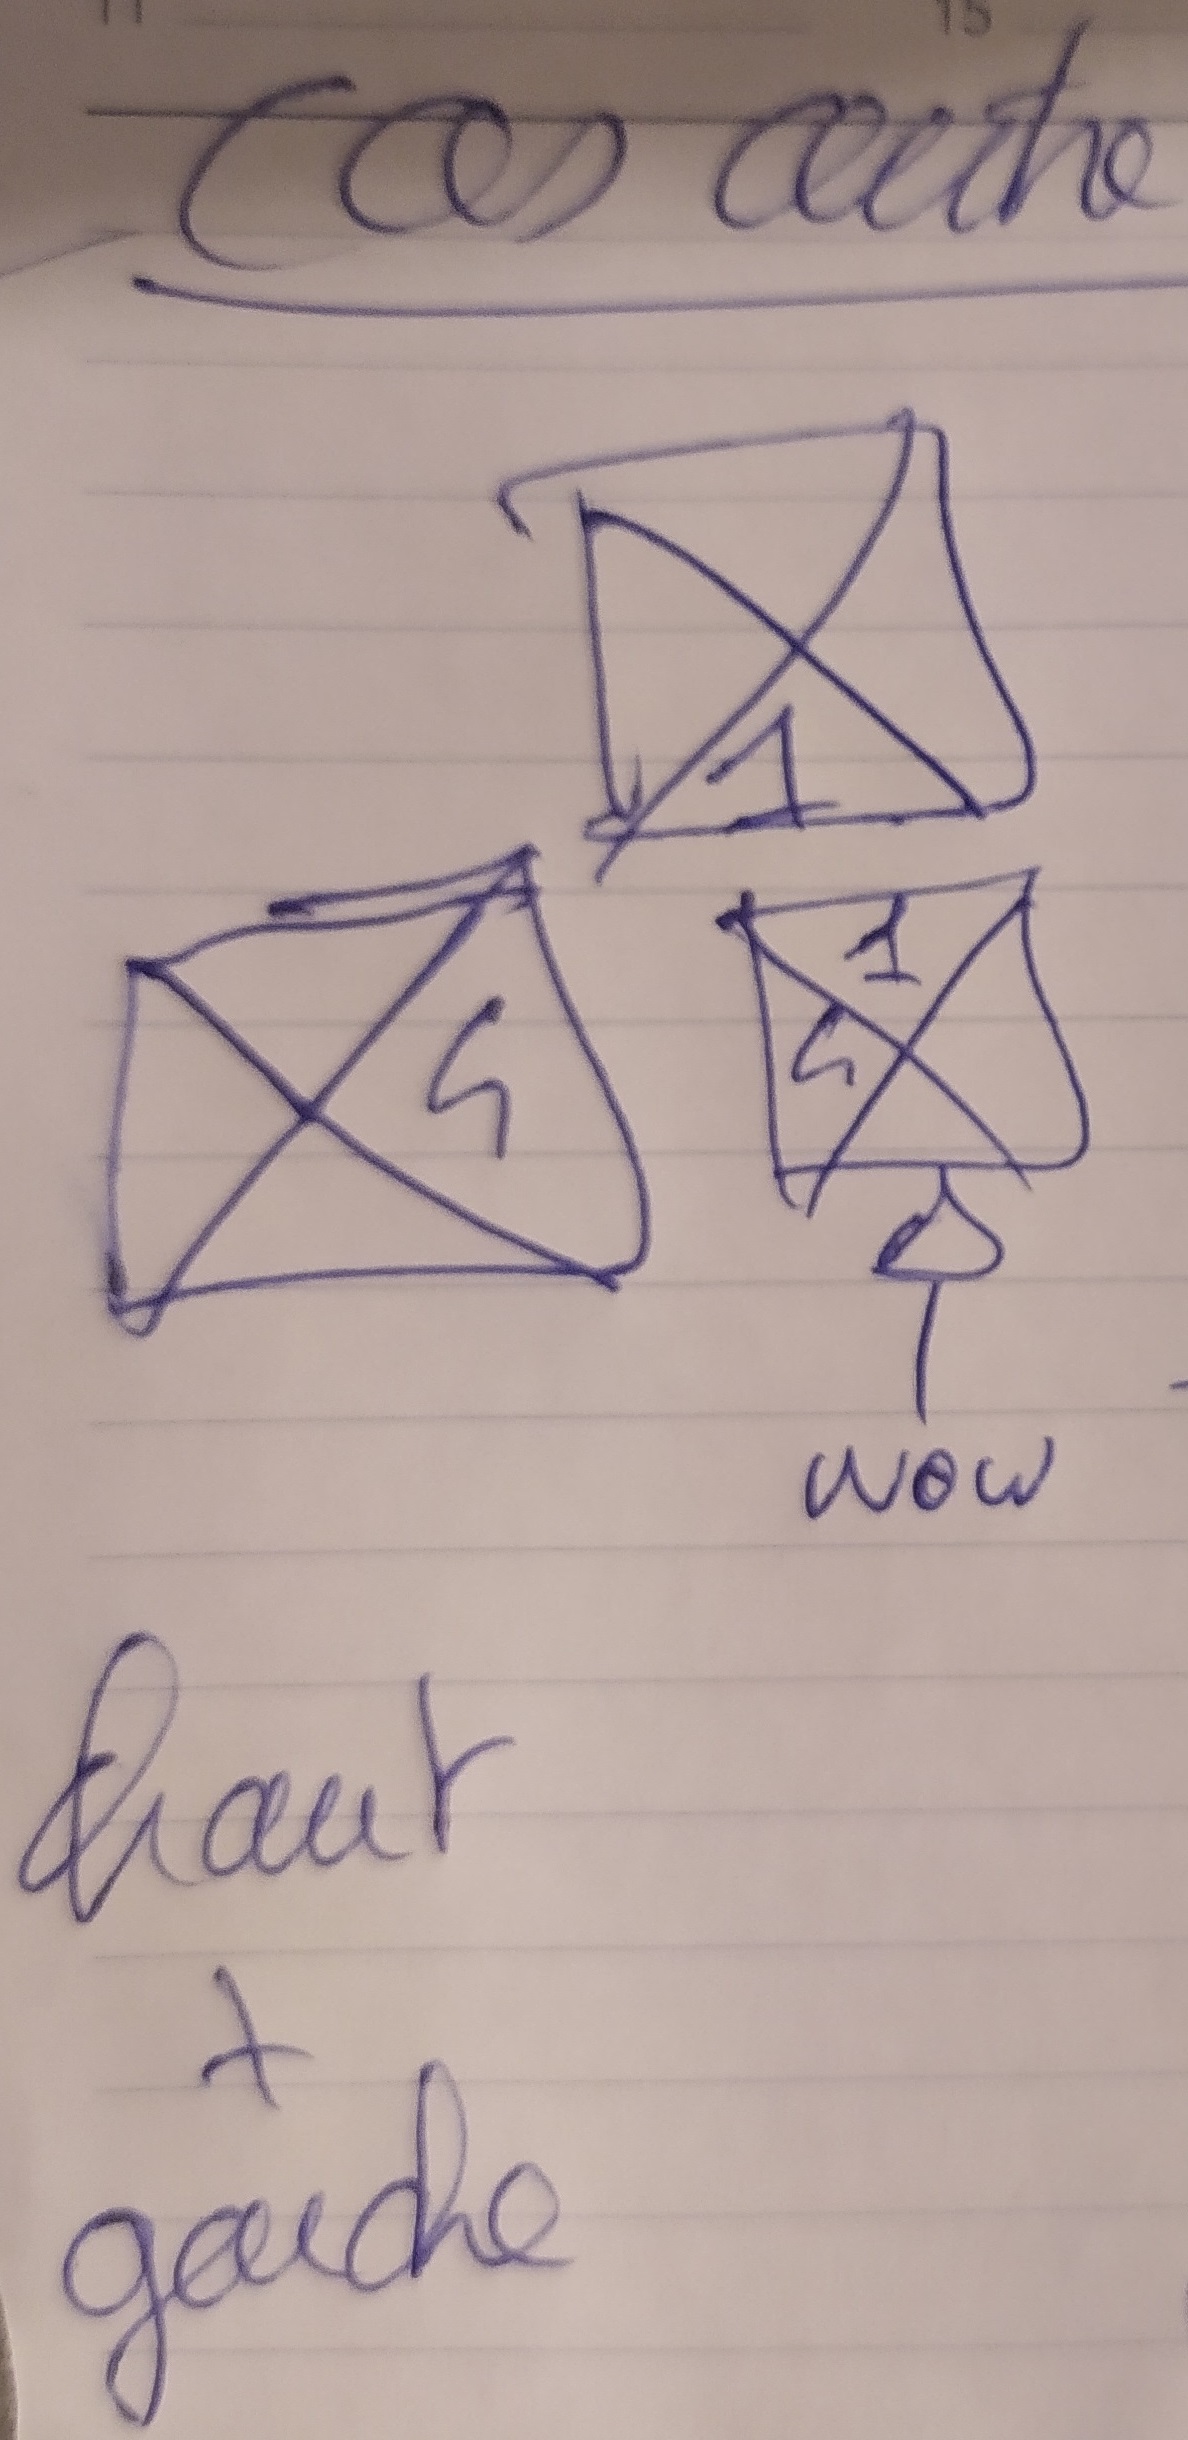 11 15
Cas autre
1
1
5
5
new
haut
+
gauche